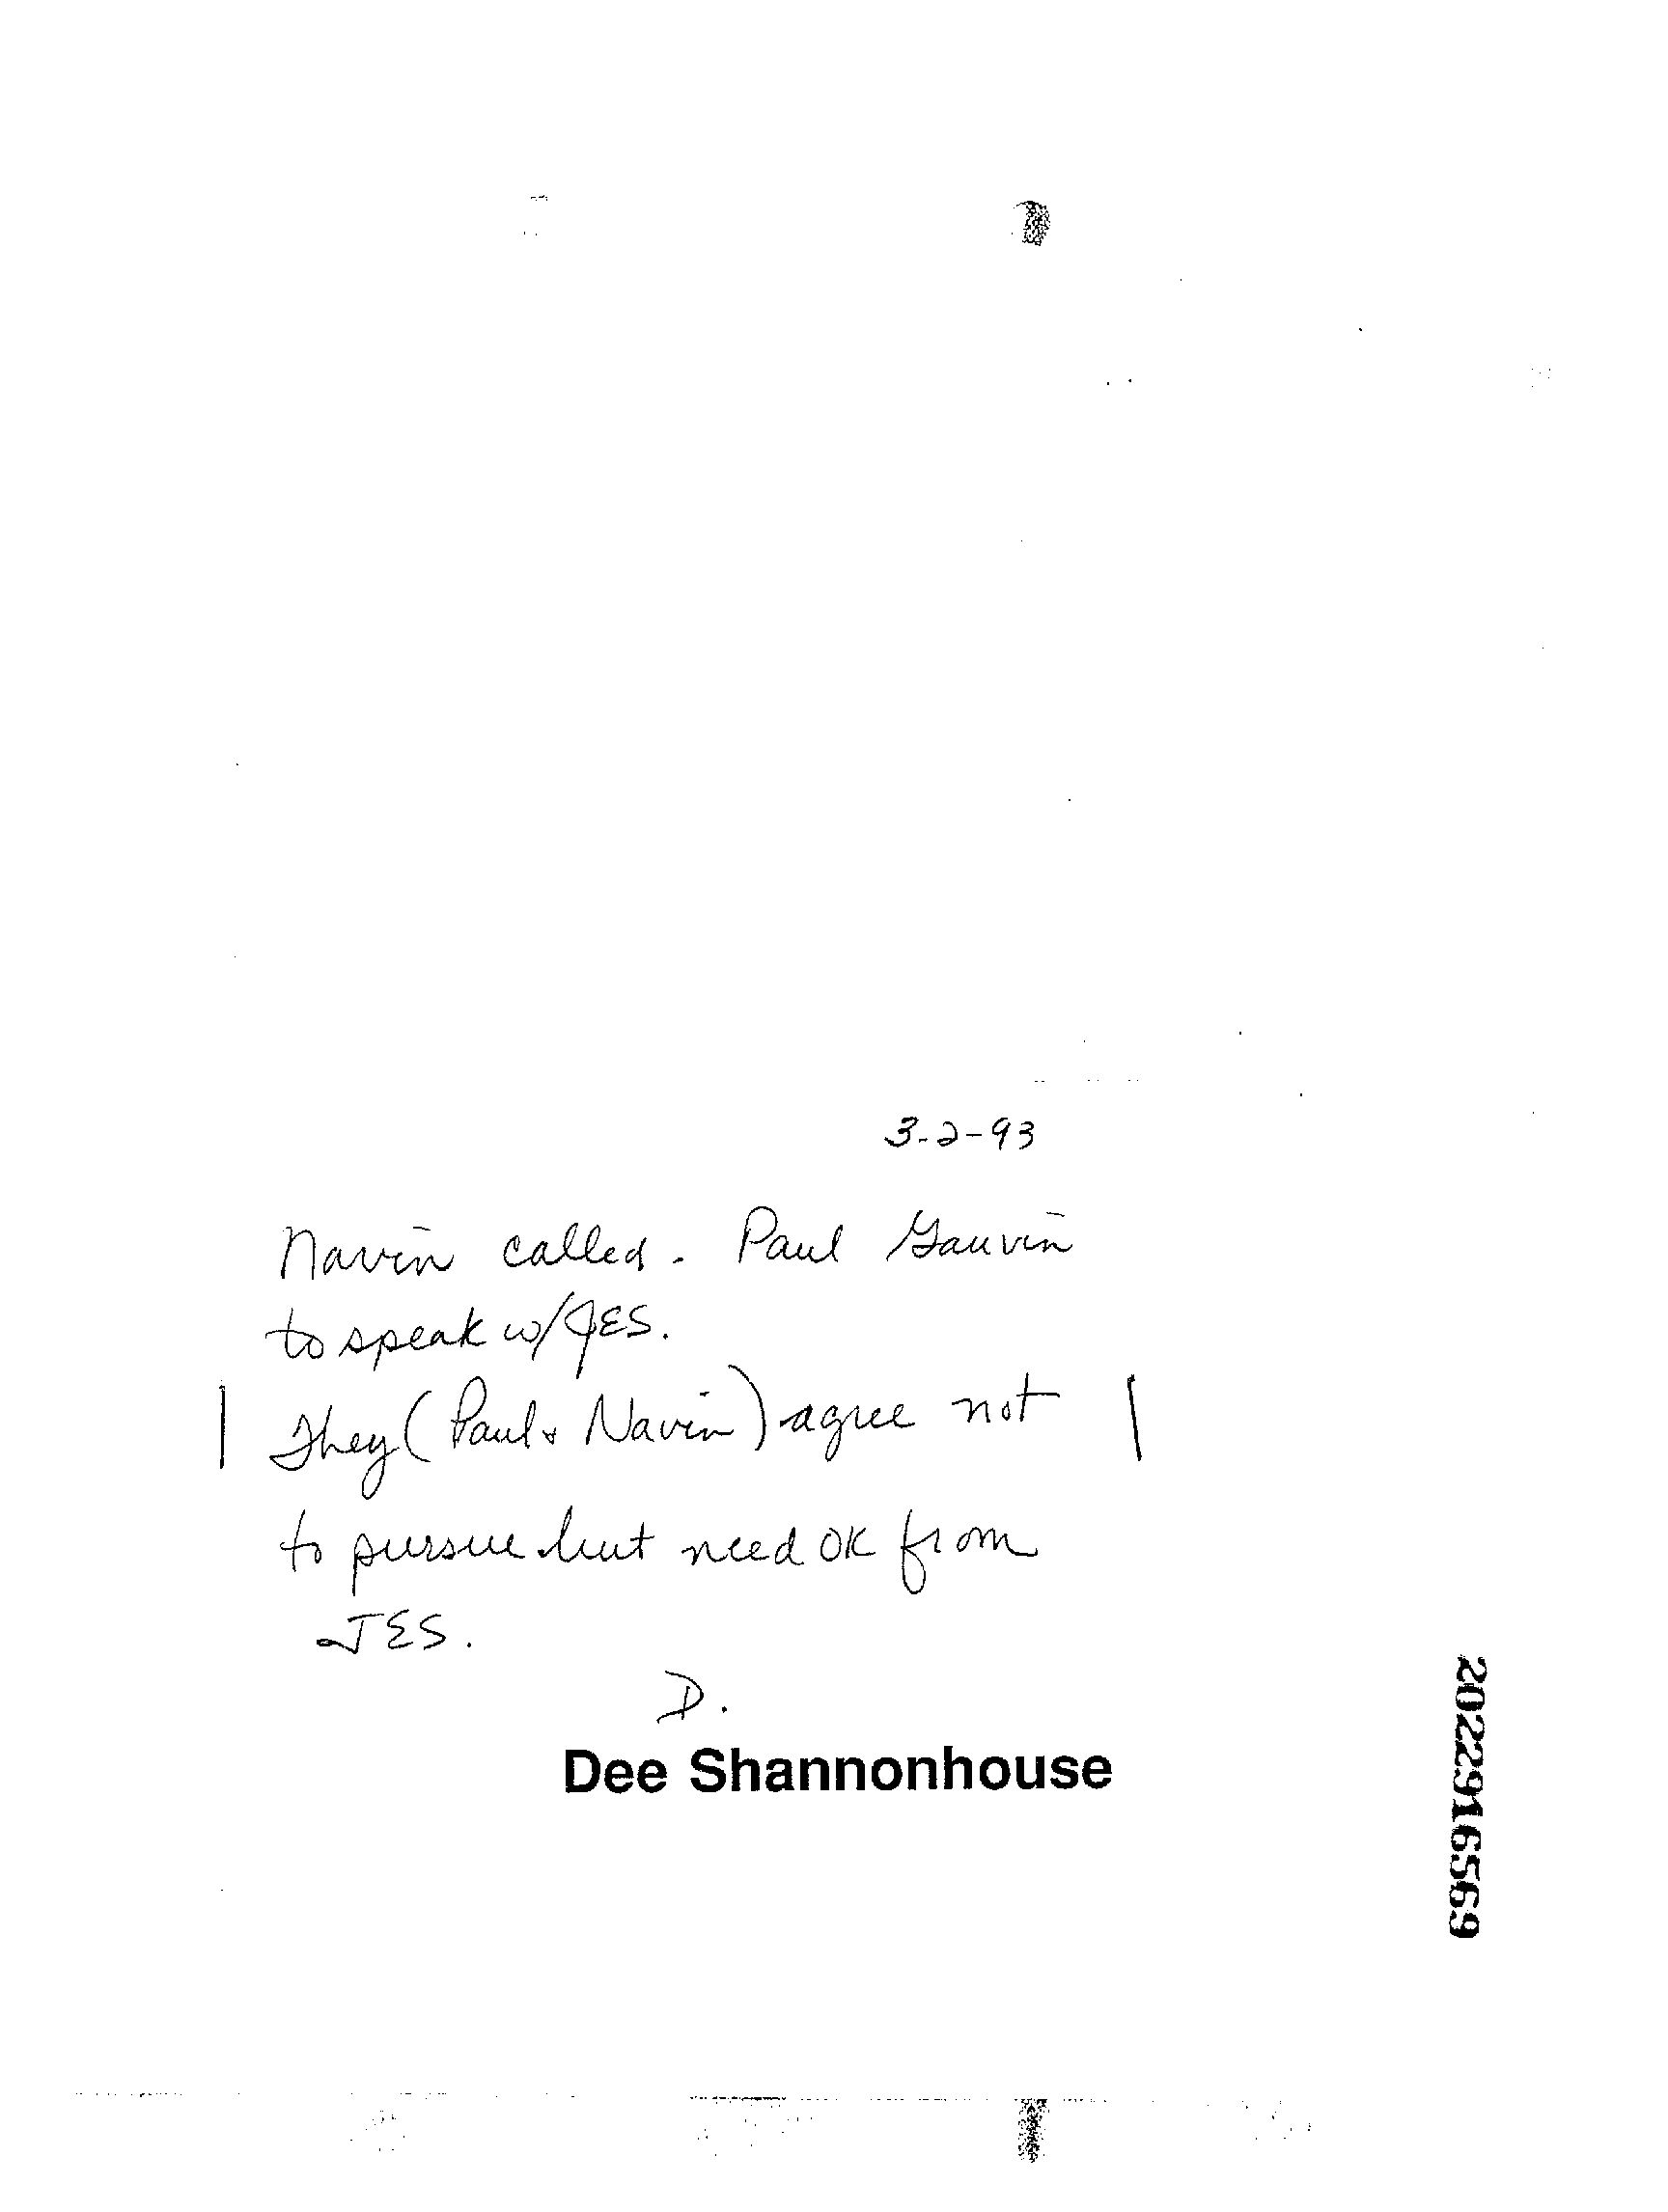 3-2-93
Navin called. Paul Gauvin
to speak w/JES.
They (Paul & Navin) agree not
to pursue but need OK from
JES.
D.
Dee Shannonhouse
2022916569